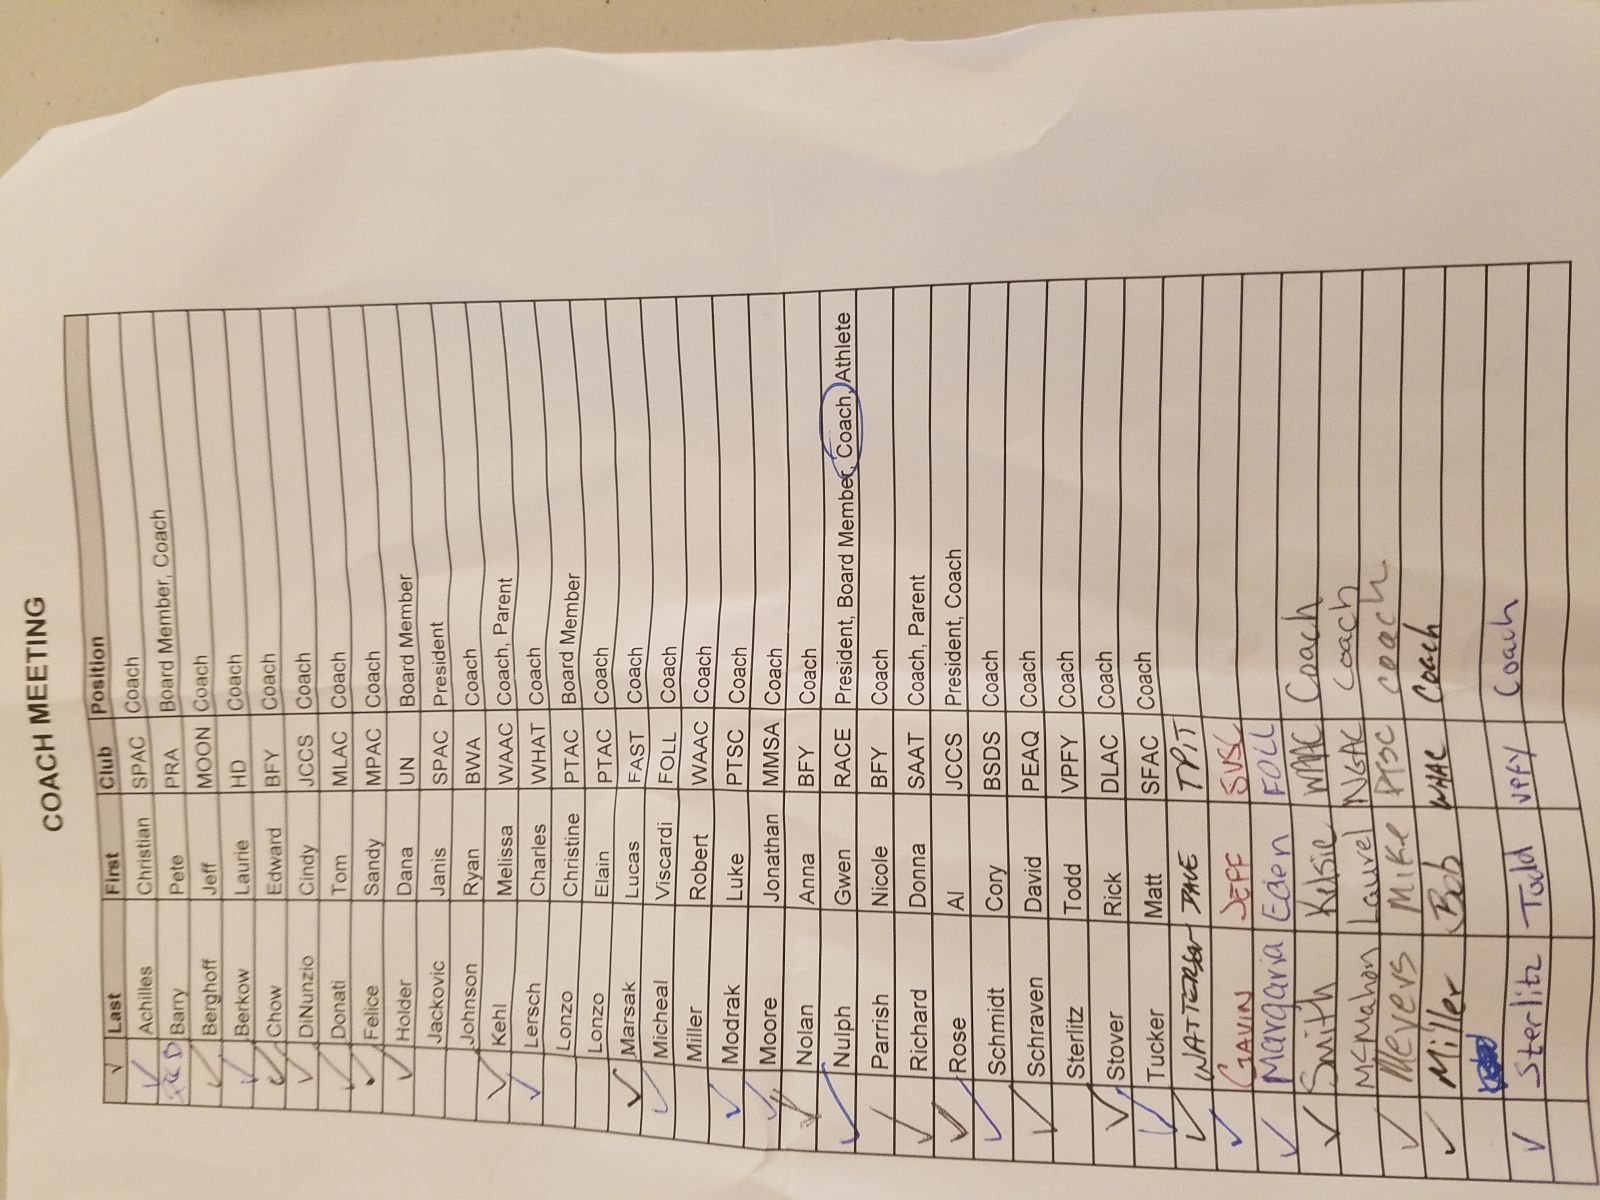 COACH MEETING
√ Last First Club Position
✓ Achilles Christian SPAC Coach
Barry Pete PRA Board Member, Coach
✓ Berghoff Jeff MOON Coach
✓ Berkow Laurie HD Coach
✓ Chow Edward BFY Coach
✓ DiNunzio Cindy JCCS Coach
✓ Donati Tom MLAC Coach
✓ Felice Sandy MPAC Coach
✓ Holder Dana UN Board Member
Jackovic Janis SPAC President
Johnson Ryan BWA Coach
✓ Kehl Melissa WAAC Coach, Parent
✓ Lersch Charles WHAT Coach
Lonzo Christine PTAC Board Member
Lonzo Elain PTAC Coach
✓ Marsak Lucas FAST Coach
✓ Micheal Viscardi FOLL Coach
Miller Robert WAAC Coach
✓ Modrak Luke PTSC Coach
✓ Moore Jonathan MMSA Coach
✓ Nolan Anna BFY Coach
✓ Nulph Gwen RACE President, Board Member, Coach, Athlete
Parrish Nicole BFY Coach
✓ Richard Donna SAAT Coach, Parent
✓ Rose Al JCCS President, Coach
✓ Schmidt Cory BSDS Coach
✓ Schraven David PEAQ Coach
Sterlitz Todd VPFY Coach
✓ Stover Rick DLAC Coach
✓ Tucker Matt SFAC Coach
✓ WATTERSON DAVE TPIT
✓ GAVIN JEFF SVSC
✓ Margaria Eden FOLL
✓ Smith Kelsie WAAC Coach
McMahon Laurel NGAC Coach
✓ Meyers Mike PTSC coach
✓ Miller Bob WHAC Coach
✓ Sterlitz Todd VPFY Coach